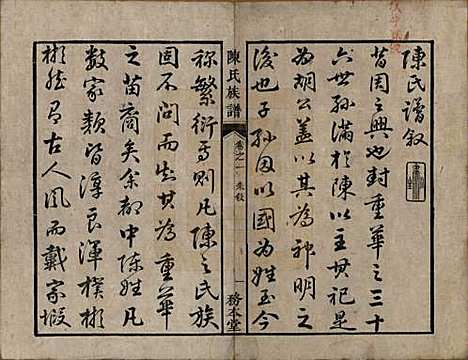 陳氏譜敘
昔周之興也封重華之三十
六世孫滿於陳以主其祀是
為胡公蓋以其為神明之
後也子孫因以國為姓至今
陳氏族譜
卷之一
朱敘
一
務本堂
称繁衍焉則凡陳之民族
固不問而知其為重華
之苗裔矣余都中陳姓凡
數家類皆淳良渾樸彬
彬然有古人風而戴家塅